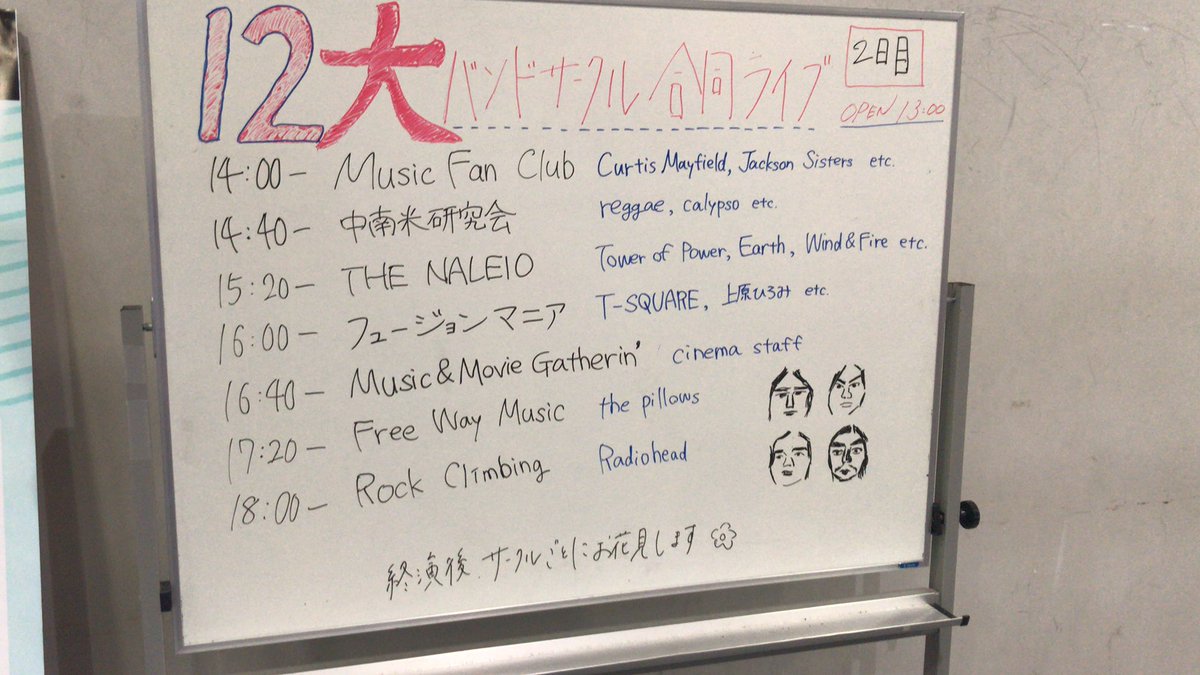 12大バンドサークル合同ライブ 2日目
OPEN 13:00
14:00- Music Fan Club Curtis Mayfield, Jackson Sisters etc.
14:40- 中南米研究会 reggae, calypso etc.
15:20- THE NALEIO Tower of Power, Earth, Wind & Fire etc.
16:00- フュージョンマニア T-SQUARE, 上原ひろみ etc.
16:40- Music & Movie Gatherin' cinema staff
17:20- Free Way Music the pillows
18:00- Rock Climbing Radiohead
終演後、サークルごとにお花見します